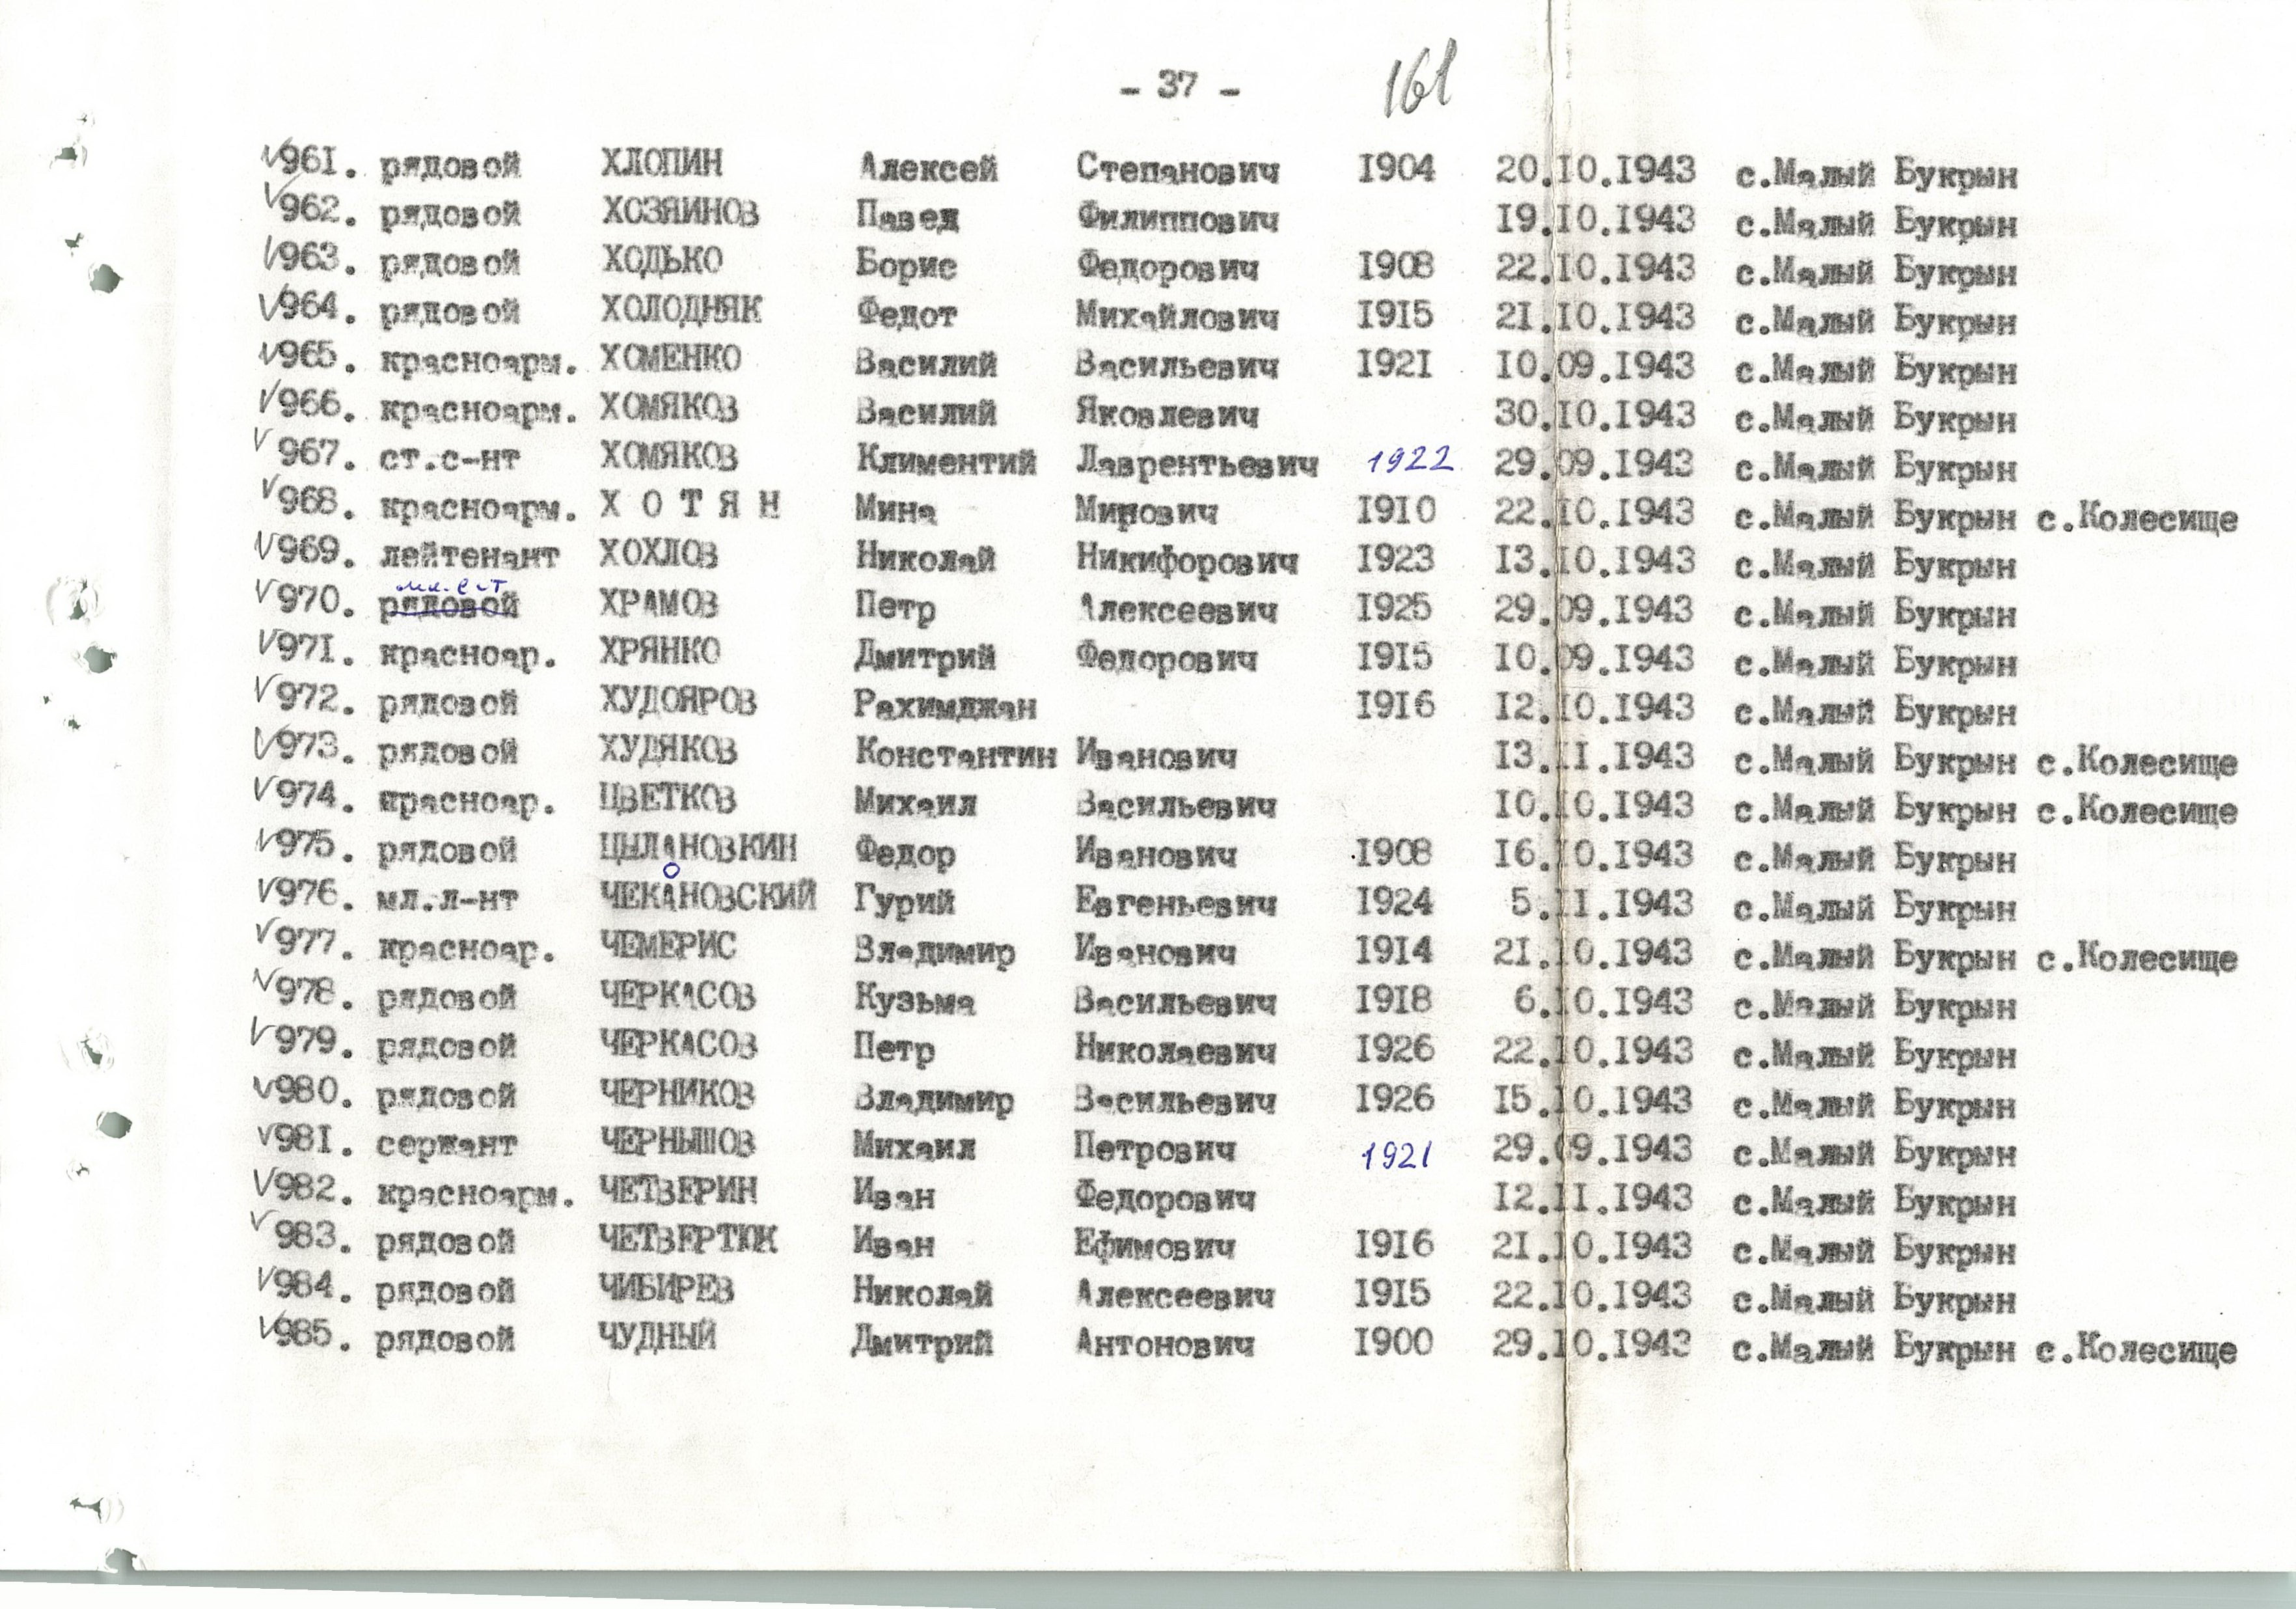 - 37 - 161
961. рядовой ХЛОПИН Алексей Степанович 1904 20.10.1943 с.Малый Букрын
962. рядовой ХОЗЯИНОВ Павел Филиппович 19.10.1943 с.Малый Букрын
963. рядовой ХОДЬКО Борис Федорович 1908 22.10.1943 с.Малый Букрын
964. рядовой ХОЛОДНЯК Федот Михайлович 1915 21.10.1943 с.Малый Букрын
965. красноарм. ХОМЕНКО Василий Васильевич 1921 10.09.1943 с.Малый Букрын
966. красноарм. ХОМЯКОВ Василий Яковлевич 30.10.1943 с.Малый Букрын
967. ст.с-нт ХОМЯКОВ Климентий Лаврентьевич 1922 29.09.1943 с.Малый Букрын
968. красноарм. Х О Т Я Н Мина Минович 1910 22.10.1943 с.Малый Букрын с.Колесище
969. лейтенант ХОХЛОВ Николай Никифорович 1923 13.10.1943 с.Малый Букрын
мл. с-т
970. рядовой ХРАМОВ Петр Алексеевич 1925 29.09.1943 с.Малый Букрын
971. красноар. ХРЯНКО Дмитрий Федорович 1915 10.09.1943 с.Малый Букрын
972. рядовой ХУДОЯРОВ Рахимджан 1916 12.10.1943 с.Малый Букрын
973. рядовой ХУДЯКОВ Константин Иванович 13.11.1943 с.Малый Букрын с.Колесище
974. красноар. ЦВЕТКОВ Михаил Васильевич 10.10.1943 с.Малый Букрын с.Колесище
975. рядовой ЦЫЛАНОВКИН Федор Иванович 1908 16.10.1943 с.Малый Букрын
о
976. мл.л-нт ЧЕКАНОВСКИЙ Гурий Евгеньевич 1924 5.11.1943 с.Малый Букрын
977. красноар. ЧЕМЕРИС Владимир Иванович 1914 21.10.1943 с.Малый Букрын с.Колесище
978. рядовой ЧЕРКАСОВ Кузьма Васильевич 1918 6.10.1943 с.Малый Букрын
979. рядовой ЧЕРКАСОВ Петр Николаевич 1926 22.10.1943 с.Малый Букрын
980. рядовой ЧЕРНИКОВ Владимир Васильевич 1926 15.10.1943 с.Малый Букрын
981. сержант ЧЕРНЫШОВ Михаил Петрович 1921 29.09.1943 с.Малый Букрын
982. красноарм. ЧЕТВЕРИН Иван Федорович 12.11.1943 с.Малый Букрын
983. рядовой ЧЕТВЕРТЮК Иван Ефимович 1916 21.10.1943 с.Малый Букрын
984. рядовой ЧИБИРЕВ Николай Алексеевич 1915 22.10.1943 с.Малый Букрын
985. рядовой ЧУДНЫЙ Дмитрий Антонович 1900 29.10.1943 с.Малый Букрын с.Колесище